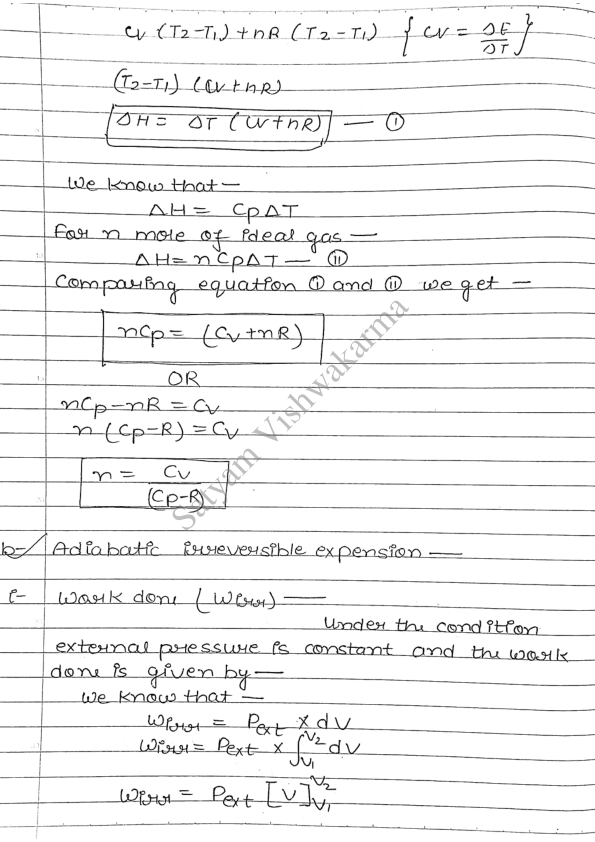 Cv (T2-T1) + nR (T2-T1) { Cv = ΔE/ΔT }
(T2-T1) (Cv+nR)
ΔH = ΔT (Cv+nR) — ①
We know that —
ΔH = CpΔT
For n mole of ideal gas —
ΔH = nCpΔT — ⑪
Comparing equation ① and ⑪ we get —
nCp = (Cv+nR)
OR
nCp-nR = Cv
n (Cp-R) = Cv
n = Cv/(Cp-R)
Satyam Vishwakarma
b- Adiabatic irreversible expension —
i- Work done (Wirr) —
Under the condition
external pressure is constant and the work
done is given by —
We know that —
Wirr = Pext × dV
Wirr = Pext × ∫V1V2 dV
Wirr = Pext [V]V1V2